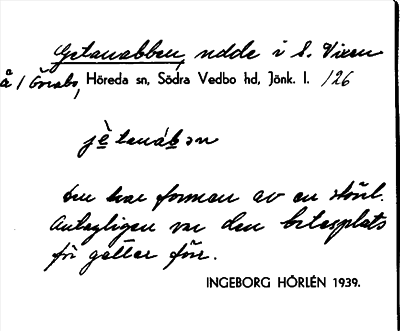 Getanabben, udde i S. Vixen
å / Önabo, Höreda sn, Södra Vedbo hd, Jönk. l. 126
jè tanáb ən
Den har formen av en stövl.
Antagligen var den betesplats
för getter förr.
INGEBORG HÖRLÉN 1939.